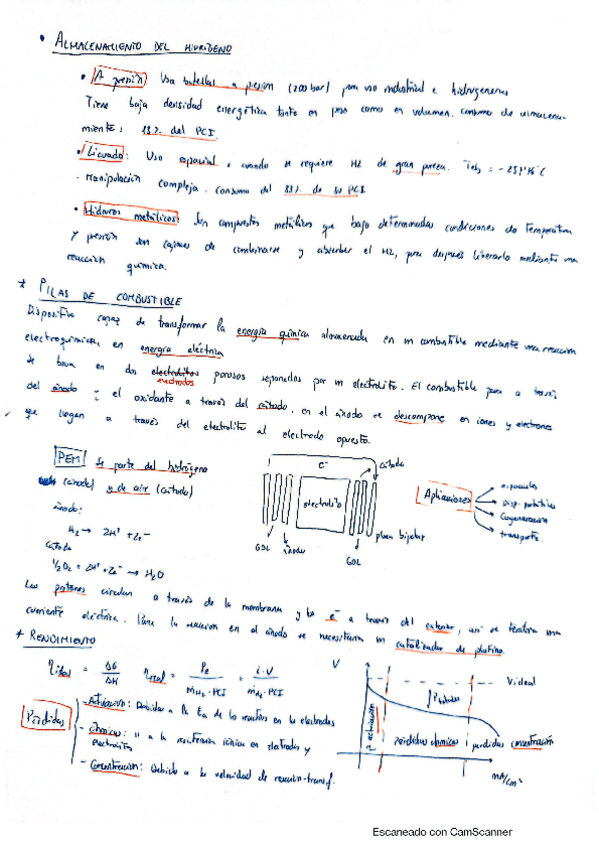 • ALMACENAMIENTO DEL HIDRÓGENO
• A presión: Usa botellas a presión (200 bar) para uso industrial e hidrogeneras
Tiene baja densidad energética tanto en peso como en volumen. consumo de almacena-
miento: 13% del PCI.
• Licuado: Uso espacial, cuando se requiere H2 de gran pureza. Teb = -252'76°C
Manipulación compleja. Consumo del 33% de su PCI
• Hidruros metálicos: Son compuestos metálicos que bajo determinadas condiciones de Temperatura
y presión son capaces de combinarse y absorber el H2, para después liberarlo mediante una
reacción química.
* PILAS DE COMBUSTIBLE
Dispositivo capaz de transformar la energía química almacenada en un combustible mediante una reacción
electroquímica, en energía eléctrica
Se basa en dos electrodos porosos separados por un electrolito. El combustible pasa a través
del ánodo y el oxidante a través del cátodo, en el ánodo se descompone en iones y electrones
que llegan a través del electrolito al electrodo opuesto.
PEM Se parte del hidrógeno
(ánodo) y de aire (cátodo)
ánodo:
H2 → 2H+ + 2e-
cátodo
1/2 O2 + 2H+ + 2e- → H2O
e-
cátodo
electrolito
placa bipolar
GDL
ánodo
GDL
Aplicaciones
espaciales
Disp. portátiles
Cogeneración
transporte
Los protones circulan a través de la membrana y los e- a través del exterior, así se tendrá una
corriente eléctrica. Para la reacción en el ánodo se necesitará un catalizador de platino.
* RENDIMIENTO
ηideal = ΔG/ΔH ηreal = Pe/ṁH2·PCI = i·V/ṁH2·PCI
Pérdidas
- Activación: Debidas a la Ea de las reactivos en los electrodos
- Óhmicas: " a la resistencia iónica en electrodos y
electrolitos
- Concentración: Debido a la velocidad de reacción-transf.
V
V.ideal
Pérdidas
activación
pérdidas ohmicas
perdidas concentración
mA/cm²
Escaneado con CamScanner